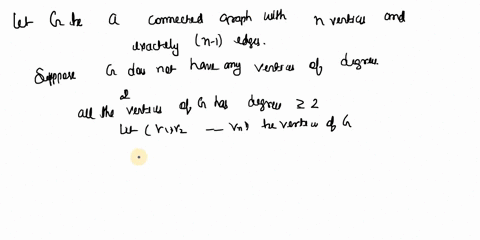 Let G be a connected graph with n vertices and
exactly (n-1) edges.
Suppose G does not have any vertices of degree
1
all the vertices of G has degree ≥ 2
Let (v1, v2 --- vn) be vertices of G